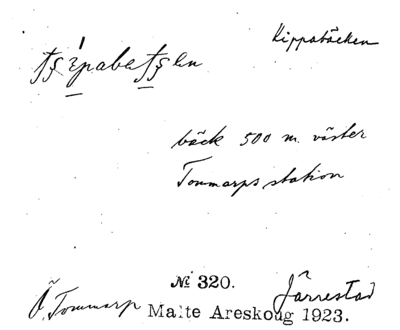 Kippabäcken
bäck 500 m. väster
Tommarps station
№ 320.
Ö. Tommarp
Järrestad
Malte Areskoug 1923.